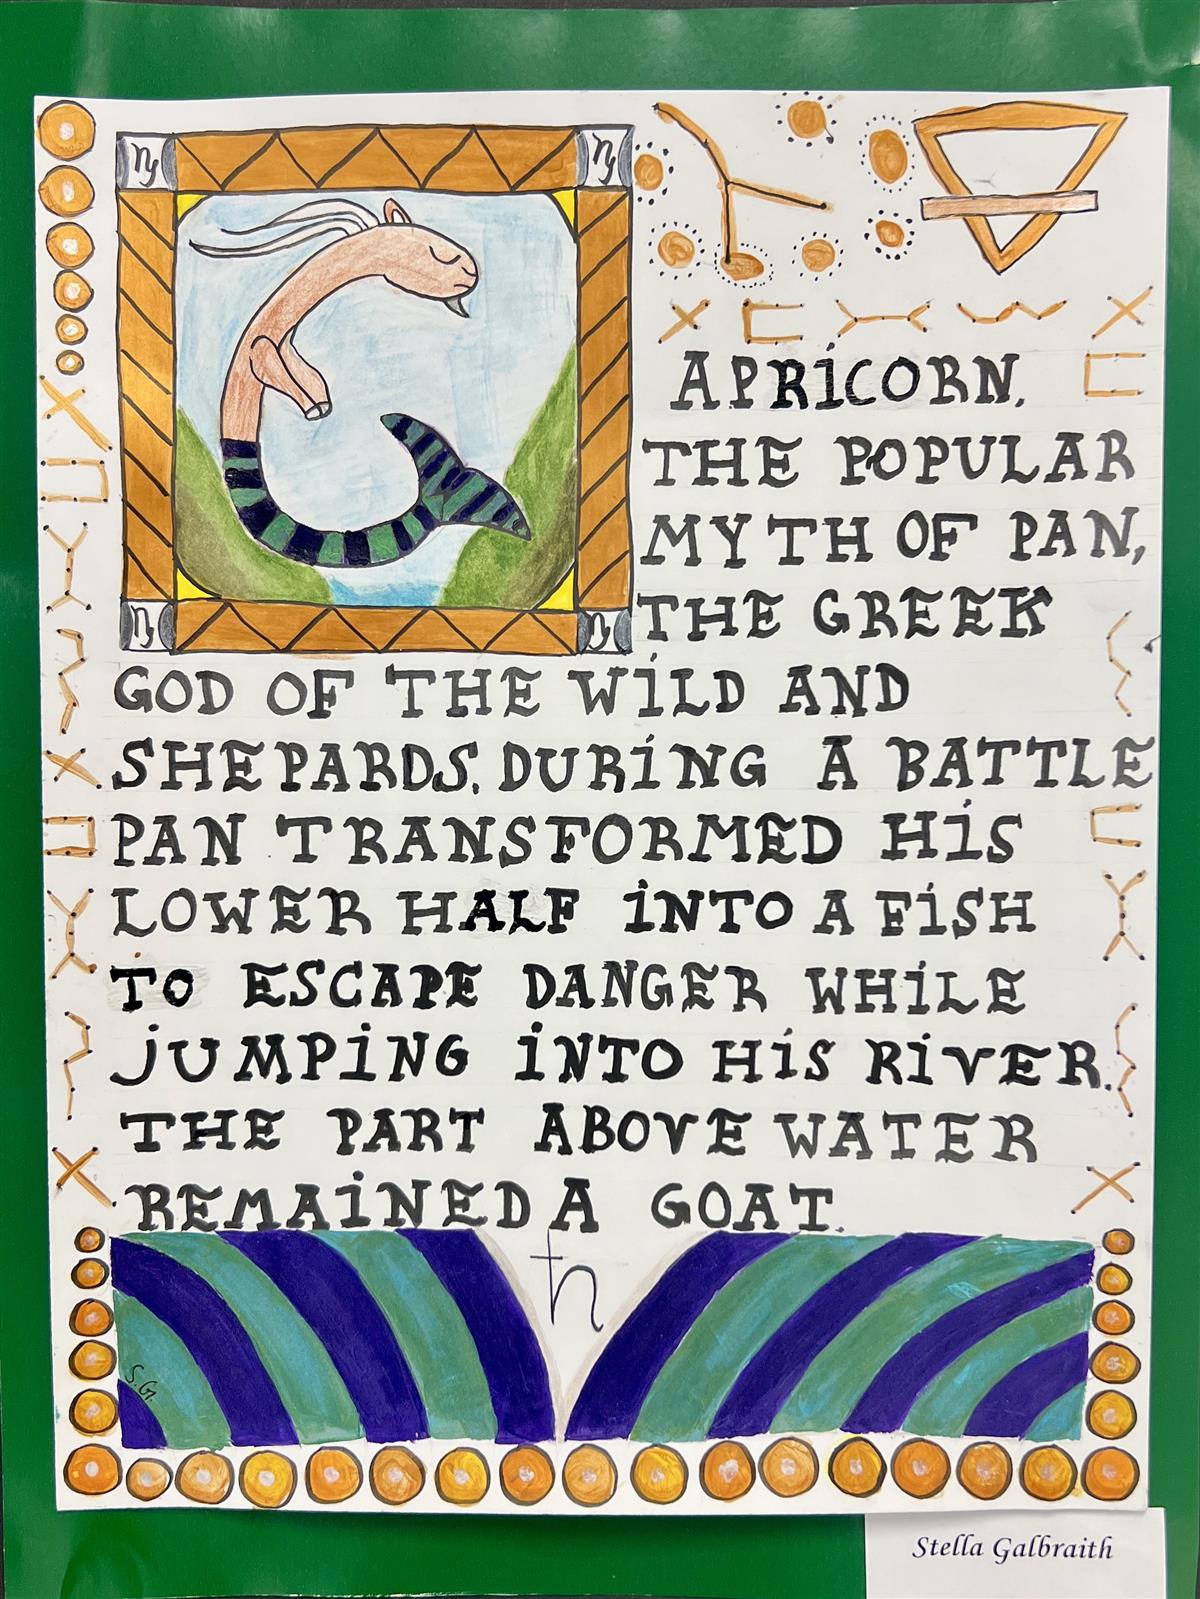 APRiCORN.
THE POPULAR
MYTH OF PAN,
THE GREEK
GOD OF THE WiLD AND
SHEPARDS. DURiNG A BATTLE
PAN TRANSFORMED HiS
LOWER HALF iNTO A FiSH
TO ESCAPE DANGER WHiLE
jUMPiNG iNTO HiS RiVER.
THE PART ABOVE WATER
REMAiNED A GOAT.
S.G.
Stella Galbraith